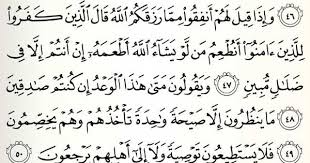 ٤٦ وَإِذَا قِيلَ لَهُمْ أَنفِقُوا۟ مِمَّا رَزَقَكُمُ ٱللَّهُ قَالَ ٱلَّذِينَ كَفَرُوا۟
لِلَّذِينَ ءَامَنُوٓا۟ أَنُطْعِمُ مَن لَّوْ يَشَآءُ ٱللَّهُ أَطْعَمَهُۥٓ إِنْ أَنتُمْ إِلَّا فِى
ضَلَٰلٍ مُّبِينٍ ٤٧ وَيَقُولُونَ مَتَىٰ هَٰذَا ٱلْوَعْدُ إِن كُنتُمْ صَٰدِقِينَ
٤٨ مَا يَنظُرُونَ إِلَّا صَيْحَةً وَٰحِدَةً تَأْخُذُهُمْ وَهُمْ يَخِصِّمُونَ
٤٩ فَلَا يَسْتَطِيعُونَ تَوْصِيَةً وَلَآ إِلَىٰٓ أَهْلِهِمْ يَرْجِعُونَ ٥٠